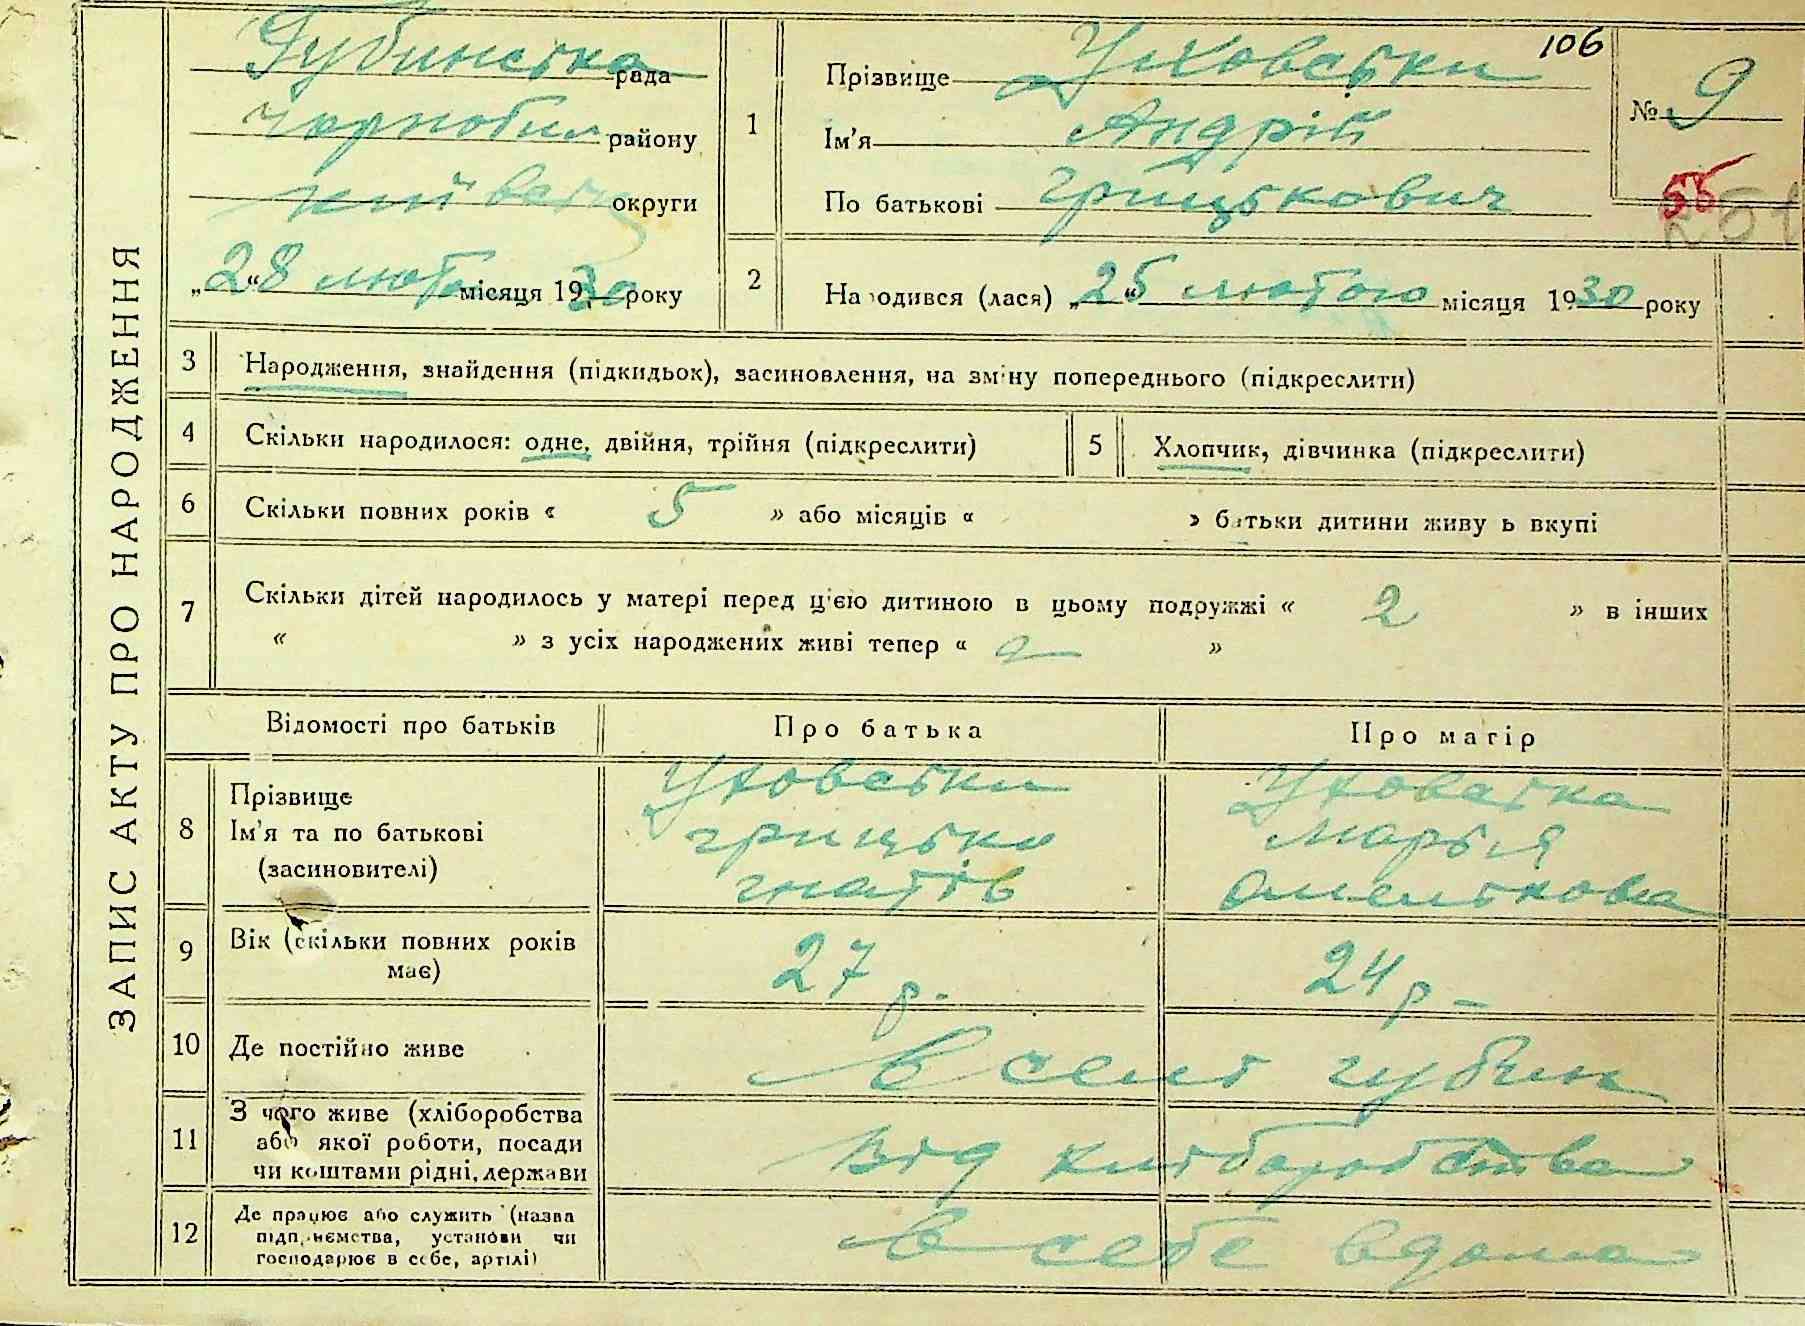 ЗАПИС АКТУ ПРО НАРОДЖЕННЯ
Губинська рада
Чорнобил району
Київськ округи
„28“ люто місяця 1930 року
106
1
Прізвище Уховськи
Ім'я Андрій
По батькові Грицькович
№ 9
55
251
2
Народився (лася) „25“ лютого місяця 1930 року
3 Народження, знайдення (підкидьок), засиновлення, на зміну попереднього (підкреслити)
4 Скільки народилося: одне, двійня, трійня (підкреслити)
5 Хлопчик, дівчинка (підкреслити)
6 Скільки повних років « 5 » або місяців « » батьки дитини живуть вкупі
7 Скільки дітей народилось у матері перед цією дитиною в цьому подружжі « 2 » в інших
« » з усіх народжених живі тепер « 2 »
Відомості про батьків Про батька Про матір
8 Прізвище
Ім'я та по батькові
(засиновителі)
Уховськи
Грицько
Гнатів
Уховська
Марья
Омелькова
9 Вік (скільки повних років
має)
27 р.
24 р
10 Де постійно живе
в селі Губин
11 З чого живе (хліборобства
або якої роботи, посади
чи коштами рідні, держави
Від хліборобства
12 Де працює або служить (назва
підприємства, установи чи
господарює в себе, артілі)
в себе вдома